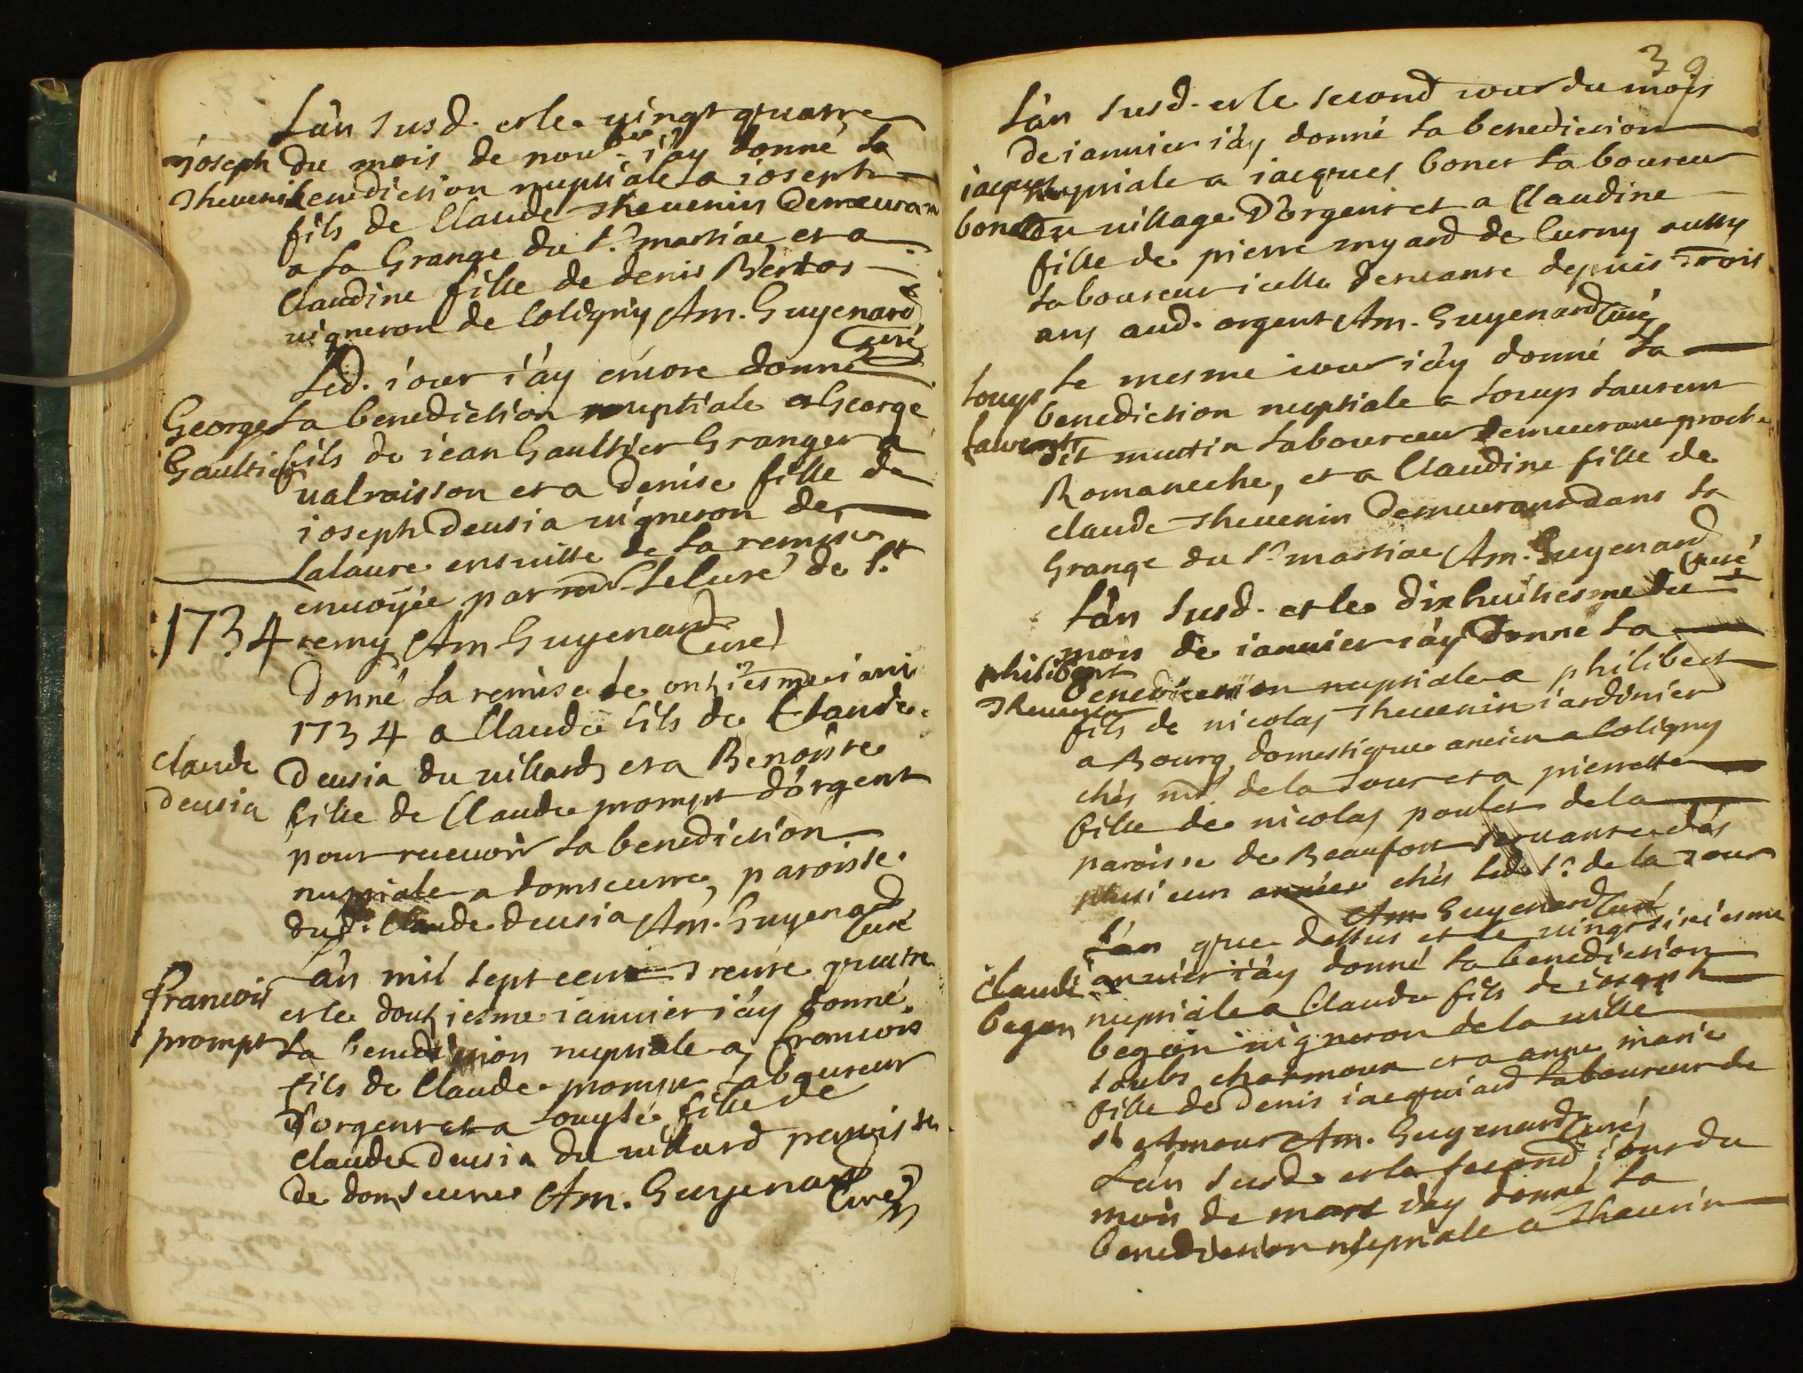 L'an susd. et le vingt quatre
joseph du mois de nov.bre i'ay donné la
Thevenin benediction nuptiale a ioseph
fils de Claude Thevenin demeurant
a la Grange du S.r martiae et a
Claudine fille de denis Bertos
vigneron de Coligny Am. Guyenard
Curé
Led. iour i'ay encore donné
George la benediction nuptiale a George
Gaultier fils de iean Gaultier Granger a
valroisson et a denise fille de
ioseph Deusia vigneron de
Lalaure ensuitte de la remise
envoÿée par m.r le Curé de S.t
1734 remy Am Guyenard
Curé
Donné la remise le onziesme ianv.
1734 a Claude fils de Claude
claude Deusia du villard et a Benoiste
deusia fille de Claude prompt d'orgent
pour recevoir la benediction
nuptiale a domseurre, paroisse
dud. Claude deusia Am. Guyenard
Curé
L'an mil sept cent trente quatre
francois et le douziesme ianvier i'ay donné
prompt la benediction nuptiale a francois
fils de Claude prompt laboureur
d'orgent et a Louyse fille de
claude Deusia du villard paroisse
de domseurre Am. Guyenard
Curé
39
L'an susd. et le second iour du mois
de ianvier i'ay donné la benediction
iacques nuptiale a iacques bonet laboureur
bonet du village D'orgent et a Claudine
fille de pierre myard de Curny aussy
laboureur icelle servante depuis trois
ans aud. orgent Am. Guyenard Curé
Le mesme iour i'ay donné la
Louys benediction nuptiale a Louys Laurent
Laurent dit mutin laboureur demeurant proche
Romaneche, et a Claudine fille de
claude Thevenin demeurant dans la
Grange du S.r martiae Am. Guyenard
Curé
L'an susd. et le dixhuitiesme du
mois de ianvier i'ay Donné la
philibert benediction nuptiale a philibert
Thevenin fils de nicolas Thevenin iardinier
a Bourg, domestique ancien a Coligny
chés m.r de la Tour et a pierrette
fille de nicolas poulet de la
paroisse de Beaufort servante dés
plusieurs années chés led. S.r de la Tour
Am. Guyenard Curé
L'an que dessus et le vingt sixiesme
claude ianvier i'ay donné la benediction
began nuptiale a Claude fils de ioseph
began vigneron de la ville
soubs charmoux et a anne marie
fille de Denis iacquiard laboureur de
S.t Amour Am. Guyenard Curé
L'an susd. et le second iour du
mois de mars i'ay donné la
benediction nuptiale a Thevenin